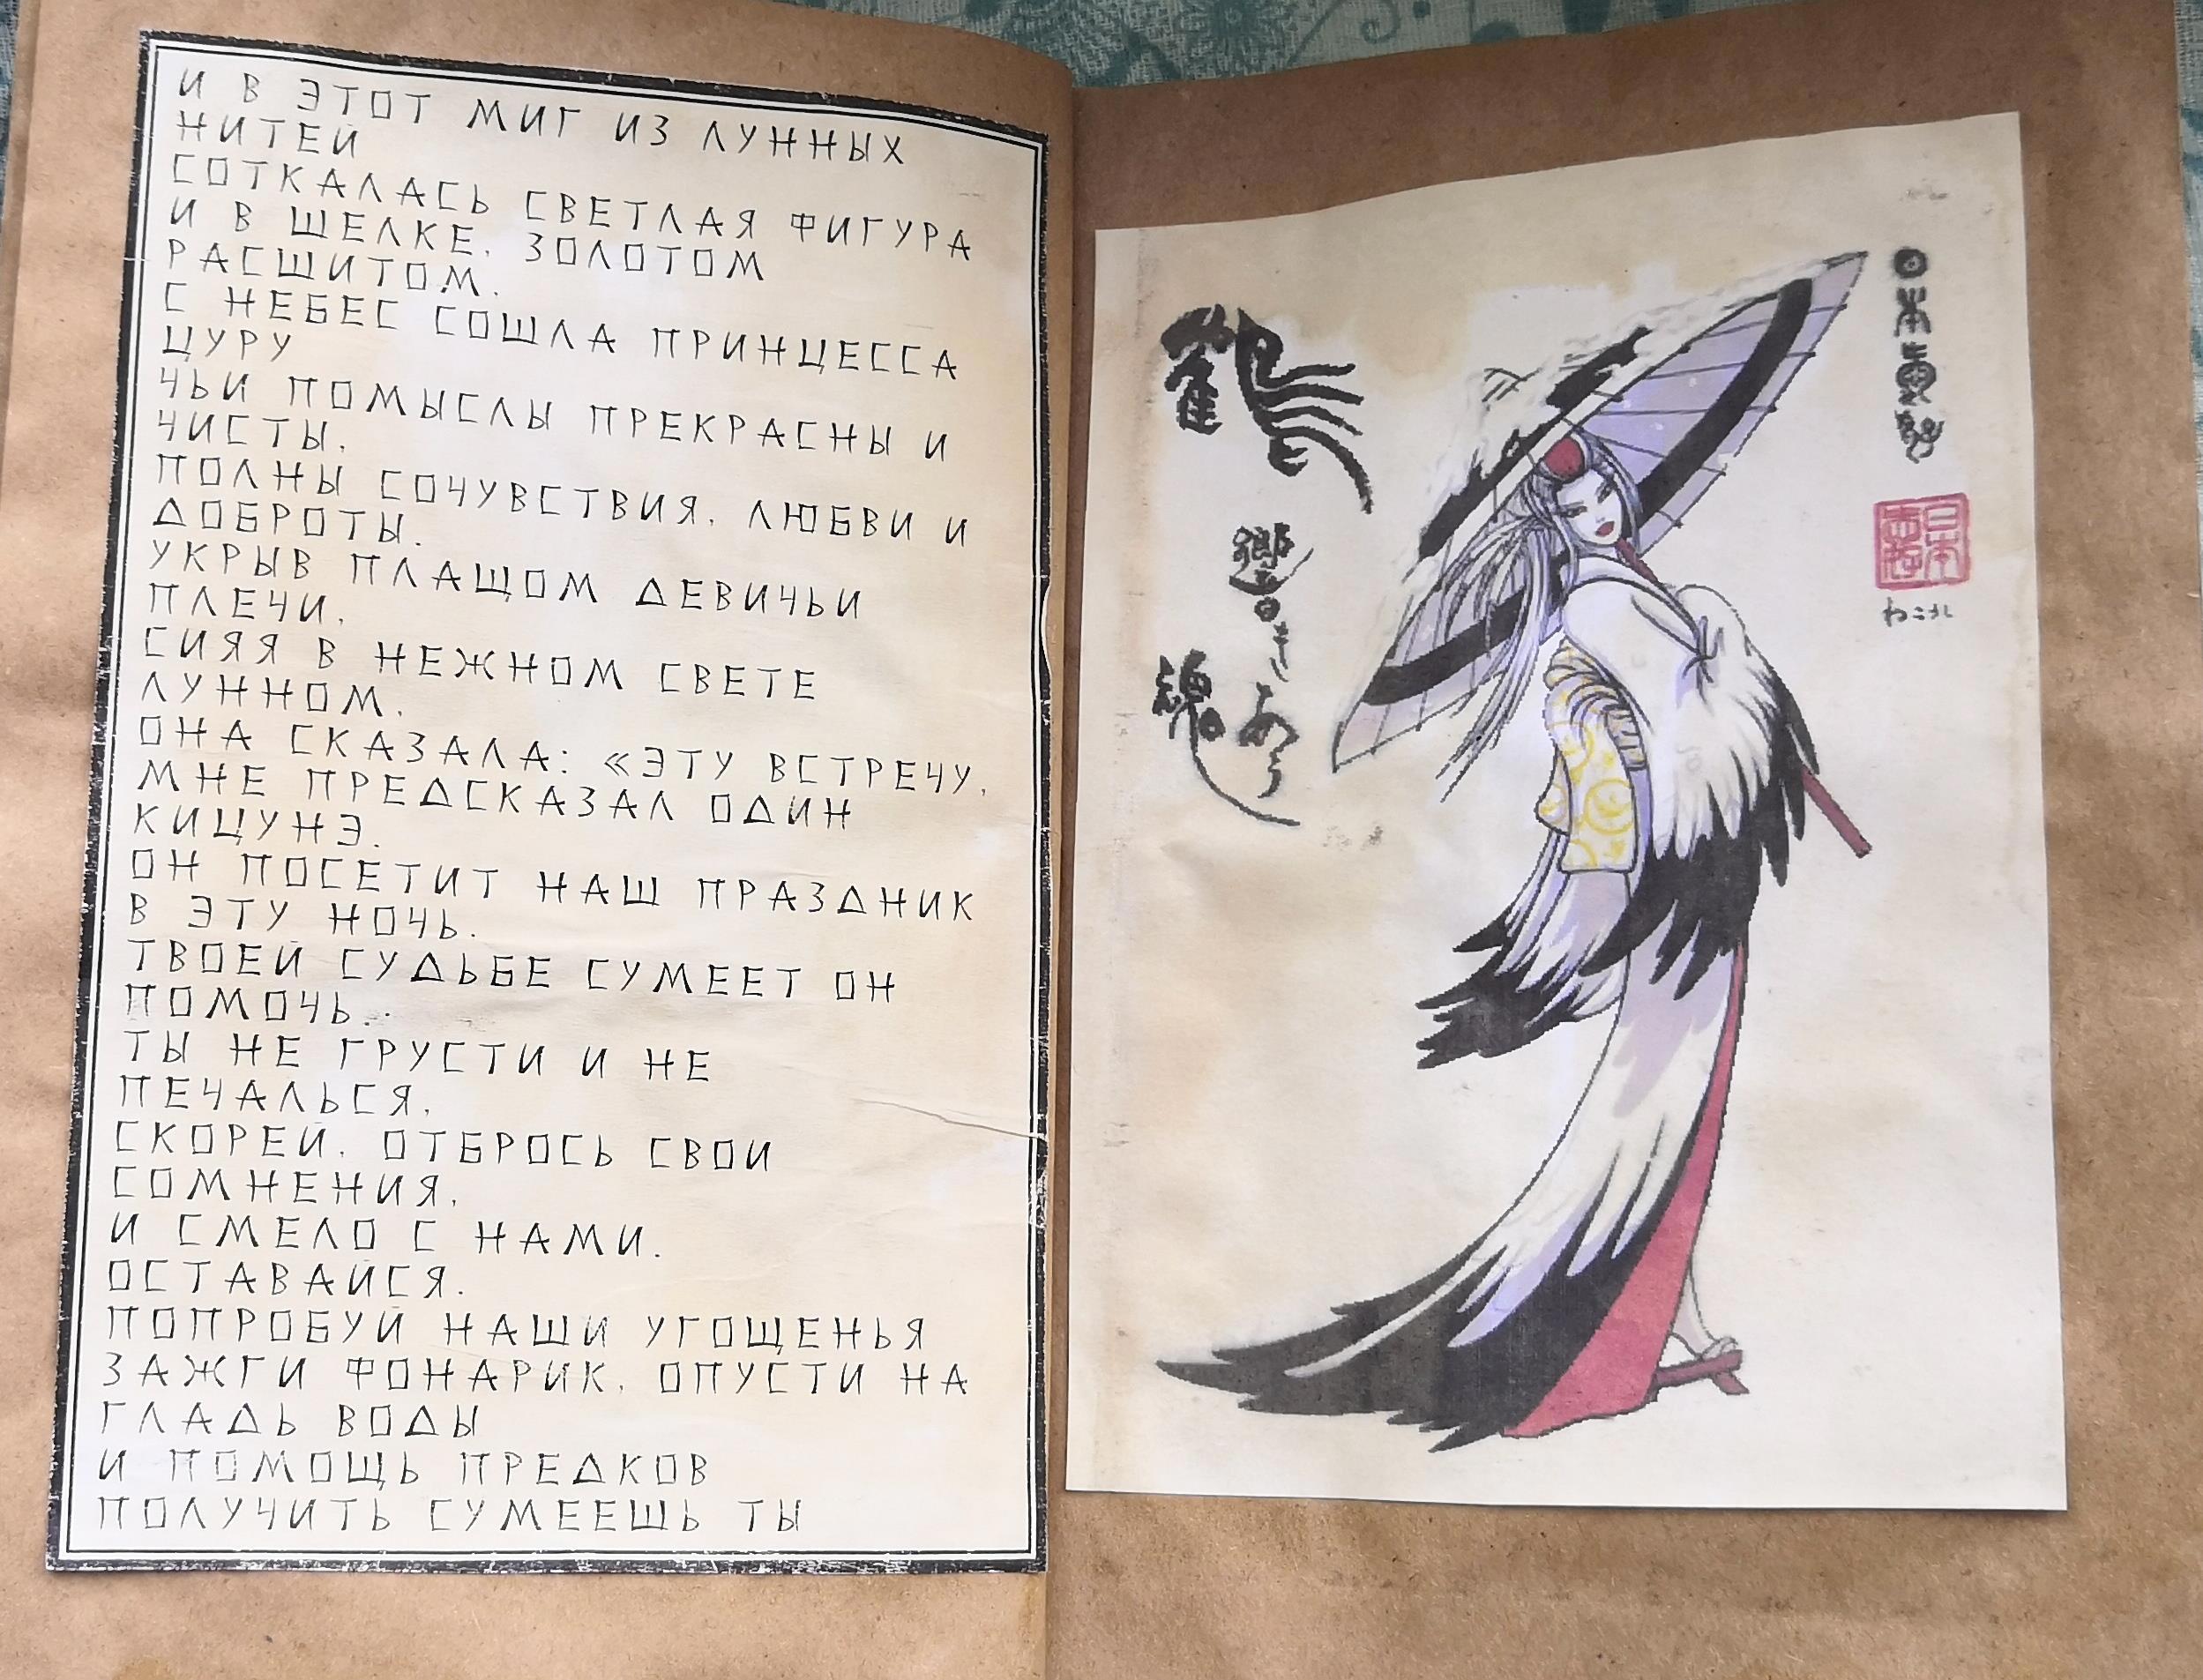 И В ЭТОТ МИГ ИЗ ЛУННЫХ
НИТЕЙ
СОТКАЛАСЬ СВЕТЛАЯ ФИГУРА
И В ШЕЛКЕ, ЗОЛОТОМ
РАСШИТОМ,
С НЕБЕС СОШЛА ПРИНЦЕССА
ЦУРУ
ЧЬИ ПОМЫСЛЫ ПРЕКРАСНЫ И
ЧИСТЫ,
ПОЛНЫ СОЧУВСТВИЯ, ЛЮБВИ И
ДОБРОТЫ.
УКРЫВ ПЛАЩОМ ДЕВИЧЬИ
ПЛЕЧИ,
СИЯЯ В НЕЖНОМ СВЕТЕ
ЛУННОМ,
ОНА СКАЗАЛА: «ЭТУ ВСТРЕЧУ,
МНЕ ПРЕДСКАЗАЛ ОДИН
КИЦУНЭ.
ОН ПОСЕТИТ НАШ ПРАЗДНИК
В ЭТУ НОЧЬ.
ТВОЕЙ СУДЬБЕ СУМЕЕТ ОН
ПОМОЧЬ..
ТЫ НЕ ГРУСТИ И НЕ
ПЕЧАЛЬСЯ,
СКОРЕЙ, ОТБРОСЬ СВОИ
СОМНЕНИЯ,
И СМЕЛО С НАМИ.
ОСТАВАЙСЯ.
ПОПРОБУЙ НАШИ УГОЩЕНЬЯ
ЗАЖГИ ФОНАРИК, ОПУСТИ НА
ГЛАДЬ ВОДЫ
И ПОМОЩЬ ПРЕДКОВ
ПОЛУЧИТЬ СУМЕЕШЬ ТЫ
鶴
魂
日本